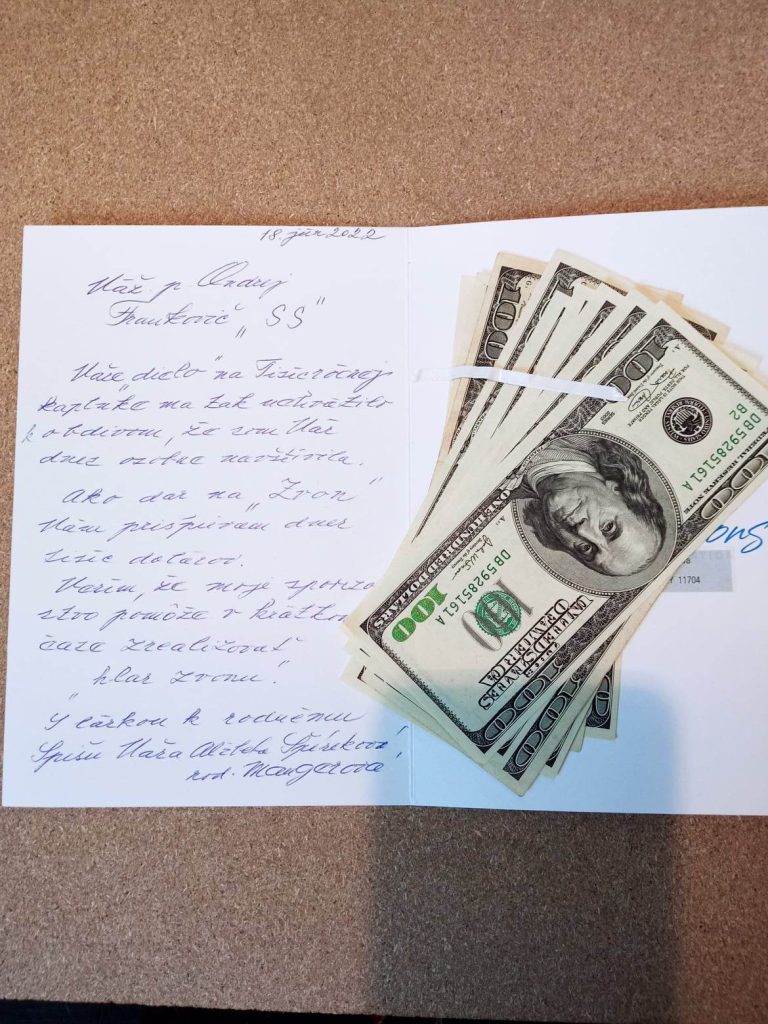 18. jún 2022
Váž. p. Ondrej
Frankovič „SS"
Vaše „dielo" na Tisícročnej
kaplnke ma tak
k obdivom, že som Váš
dnes osobne navštívila.
Ako dar na „Zvon"
Vám prispievam dnes
tisíc dolárov.
Verím, že moje sponzo
stvo pomôže v krátkom
čase zrealizovať
„hlas zvonu".
S láskou k rodnému
Spišu Vaša Alžbeta
rod. Mangerová
100
DB59285161A
B2
ONE HUNDRED DOLLARS
DB59285161A
100
THE UNITED STATES
OF AMERICA
100
ons
11704